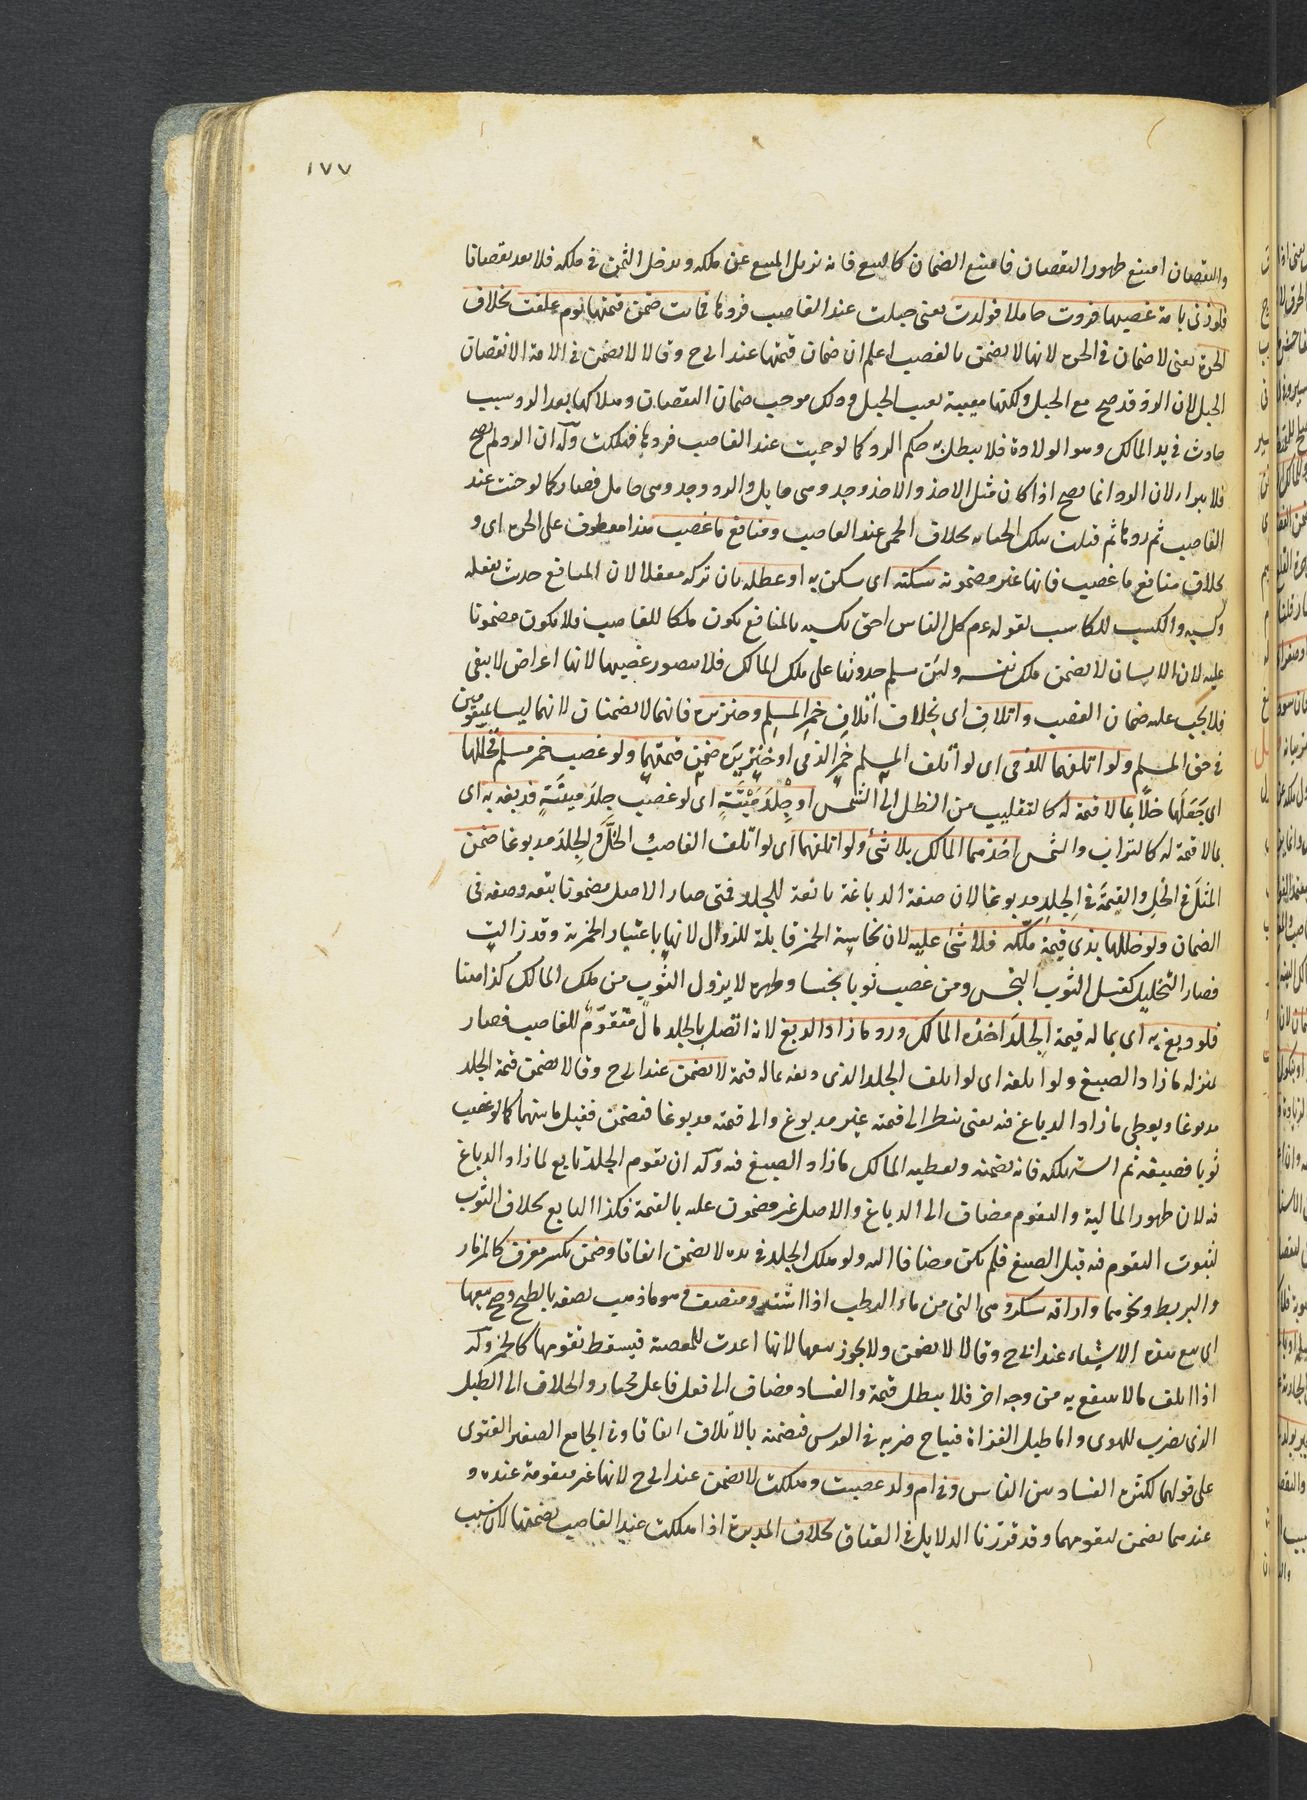 ١٧٧
والنقصان امتنع ظهور النقصان فامتنع الضمان كالبيع فانه يزيل المبيع عن ملكه ويدخل الثمن في ملكه فلا يعد نقصانا
فلو زنى بامة غصبها فردت حاملا فولدت يعنى حبلت عند الغاصب فردها فماتت ضمن قيمتها يوم علقت بخلاف
الحرة يعنى لا ضمان في الحرة لانها لا يضمن بالغصب اعلم ان ضمان قيمتها عند ابى ح وقالا لا يضمن في الامة الا نقصان
الحبل لان الرد قد صح مع الحبل ولكنها معيبة بعيب الحبل وذلك موجب ضمان النقصان وهلاكها بعد الرد بسبب
حادث في يد المالك وهو الولادة فلا يبطل به حكم الرد كما لو حميت عند الغاصب فردها فهلكت وله ان الرد لم يصح
فلا يبراء لان الرد انما يصح اذا كان مثل الاخذ والاخذ وجد وهى حايل والرد وجد وهى حامل فصار كما لو جنت عند
الغاصب ثم ردها ثم قتلت بتلك الجناية بخلاف الحمى عند الغاصب ومنافع ما غصب هذا معطوف على الحرة اى و
بخلاف منافع ما غصب فانها غير مضمونة سكنه اى سكن به او عطله بان تركه معطلا لان المنافع حدث بفعله
وكسبه والكسب للكاسب لقوله عم كل الناس احق بكسبه بالمنافع يكون ملكا للغاصب فلا يكون مضمونا
عليه لان الانسان لا يضمن ملك نفسه ولئن سلم حدوثها على ملك المالك فلا يتصور غصبها لانها اعراض لا يبقى
فلا يجب عليه ضمان الغصب واتلاف اى بخلاف اتلاف خمر المسلم وخنزيره فانهما لا يضمنان لانهما ليسا بمتقومين
في حق المسلم ولو اتلفهما للذمى اى لو اتلف المسلم خمر الذمى او خنزيره ضمن قيمتهما ولو غصب خمر مسلم فخللها
اى جعلها خلا بما لا قيمة له كالتقليب من الظل الى الشمس او جلد ميتة اى لو غصب جلد ميتة فدبغه به اى
بما لا قيمة له كالتراب والشمس اخذهما المالك بلا شئ ولو اتلفهما اى لو اتلف الغاصب الخل والجلد مدبوغا ضمن
المثل في الخل والقيمة في الجلد مدبوغا لان صفة الدباغة تابعة للجلد فمتى صار الاصل مضمونا يتبعه وصفه في
الضمان ولو خللها بذى قيمة ملكه فلا شئ عليه لان نجاسة الخمر قابلة للزوال لانها باعتبار الخمرية وقد زالت
فصار التخليل كغسل الثوب النجس ومن غصب ثوبا نجسا وطهره لا يزول الثوب من ملك المالك كذا هنا
فلو دبغ به اى بما له قيمة الجلد اخذه المالك ورد ما زاد الدبغ لانه اتصل بالجلد مال متقوم للغاصب فصار
بمنزلة ما زاد الصبغ ولو اتلفه اى لو اتلف الجلد الذى دبغه بماله قيمة لا يضمن عند ابى ح وقالا يضمن قيمة الجلد
مدبوغا ويعطى ما زاد الدباغ فيه يعنى ينظر الى قيمته غير مدبوغ والى قيمته مدبوغا فيضمن فضل ما بينهما كما لو غصب
ثوبا فصبغه ثم استهلكه فانه يضمنه ويعطيه المالك ما زاد الصبغ فيه وله ان تقوم الجلد تابع لما زاد الدباغ
فيه لان ظهور المالية والتقوم مضاف الى الدباغ والاصل غير مضمون عليه بالقيمة فكذا التابع بخلاف الثوب
لثبوت التقوم فيه قبل الصبغ فلم يكن مضافا اليه ولو هلك الجلد في يده لا يضمن اتفاقا وضمن بكسر معزف كالمزمار
والبربط ونحوهما واراقة سكر وهى النى من ماء الرطب اذا اشتد ومنصف هو ما ذهب نصفه بالطبخ وصح بيعها
اى بيع هذه الاشياء عند ابى ح وقالا لا يضمن ولا يجوز بيعها لانها اعدت للمعصية فيسقط تقومها كالخمر وله
اذا اتلف ما لا ينتفع به من وجه اخر فلا يبطل قيمة والفساد مضاف الى فعل فاعل مختار والخلاف الى الطبل
الذى يضرب للهوى واما طبل الغزاة فيباح ضربه في العرس فيضمنه بالاتلاف اتفاقا وفى الجامع الصغير الفتوى
على قولهما لكثرة الفساد بين الناس وفى ام ولد غصبت وهلكت لا يضمن عند ابى ح لانها غير متقومة عنده و
عندهما يضمن لتقومهما وقد قررنا الدلايل في العتاق بخلاف المدبرة اذا هلكت عند الغاصب يضمنها لان سبب